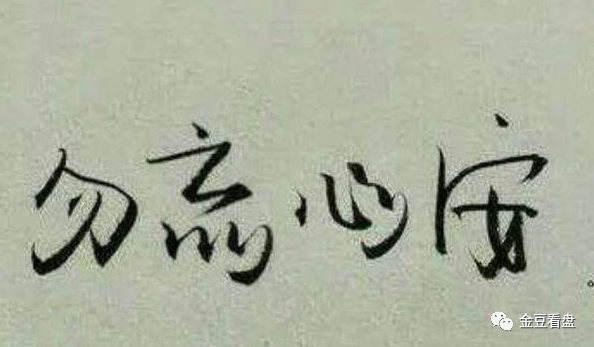 勿忘心安。
金豆看盘